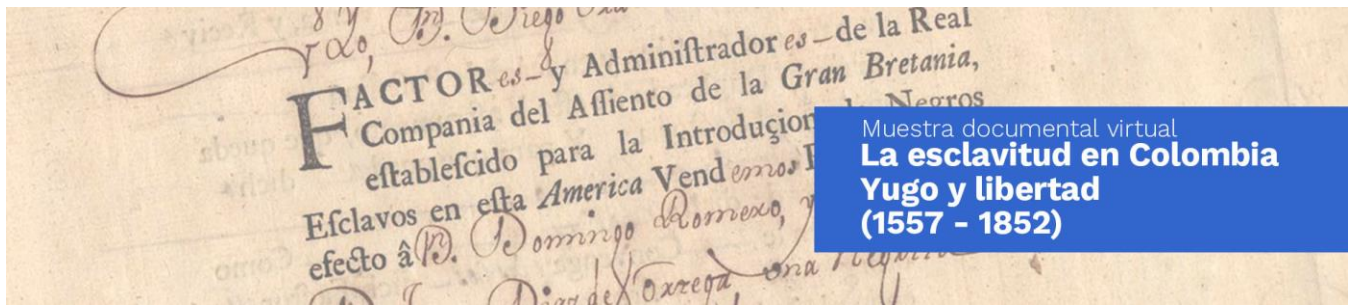 y Dn. Diego
FACTORes y Adminiſtradores de la Real
Compania del Aſſiento de la Gran Bretania,
eſtableſcido para la Introduçion Negros
Eſclavos en eſta America Vendemos
efecto â Dn. Domingo Romero, y
una
Muestra documental virtual
La esclavitud en Colombia
Yugo y libertad
(1557 - 1852)